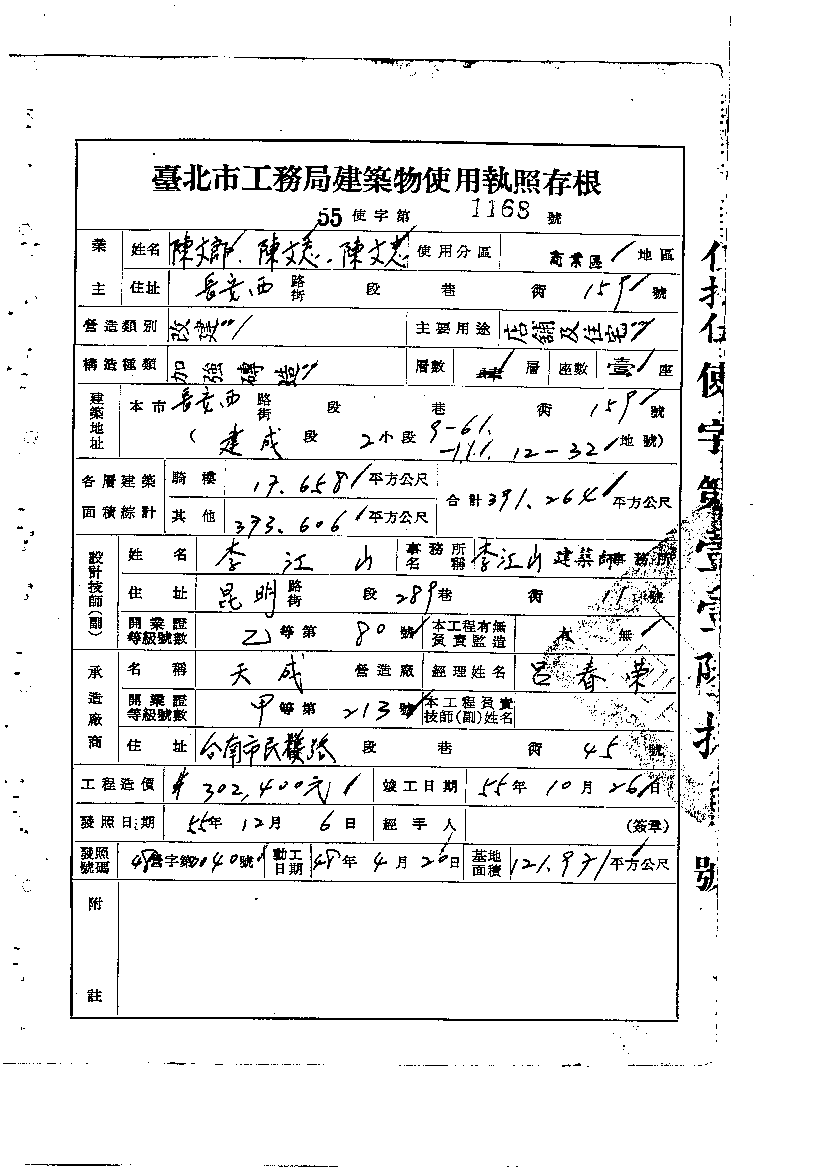 臺北市工務局建築物使用執照存根
55 使字第 1168 號
業主 姓名 陳文郡、陳文 、陳文 使用分區 商業區 地區
住址 長安西 路街 段 巷 衖 159 號
營造類別 改建 主要用途 店舖及住宅
構造種類 加強磚造 層數 層 座數 壹 座
建築地址 本市 長安西 路街 段 巷 衖 159 號
( 建成 段 2 小段 9-61 -141. 12-32 地號)
各層建築面積綜計 騎樓 17.658 平方公尺 合計 391.264 平方公尺
其他 373.606 平方公尺
設計技師(副) 姓名 李江山 事務所名稱 李江山建築師事務所
住址 昆明 路街 段 289 巷 衖 11 號
開業證等級號數 乙 等第 80 號 本工程有無負責監造 有 無
承造廠商 名稱 天成 營造廠 經理姓名 呂春榮
開業證等級號數 甲 等第 213 號 本工程負責技師(副)姓名
住址 台南市民權路 段 巷 衖 45 號
工程造價 302,400元 竣工日期 55年 10月 26日
發照日期 55年 12月 6日 經手人 (簽章)
發照號碼 48營字第0040號 動工日期 48年 4月 20日 基地面積 121.931 平方公尺
附註
使字第壹壹陸 號